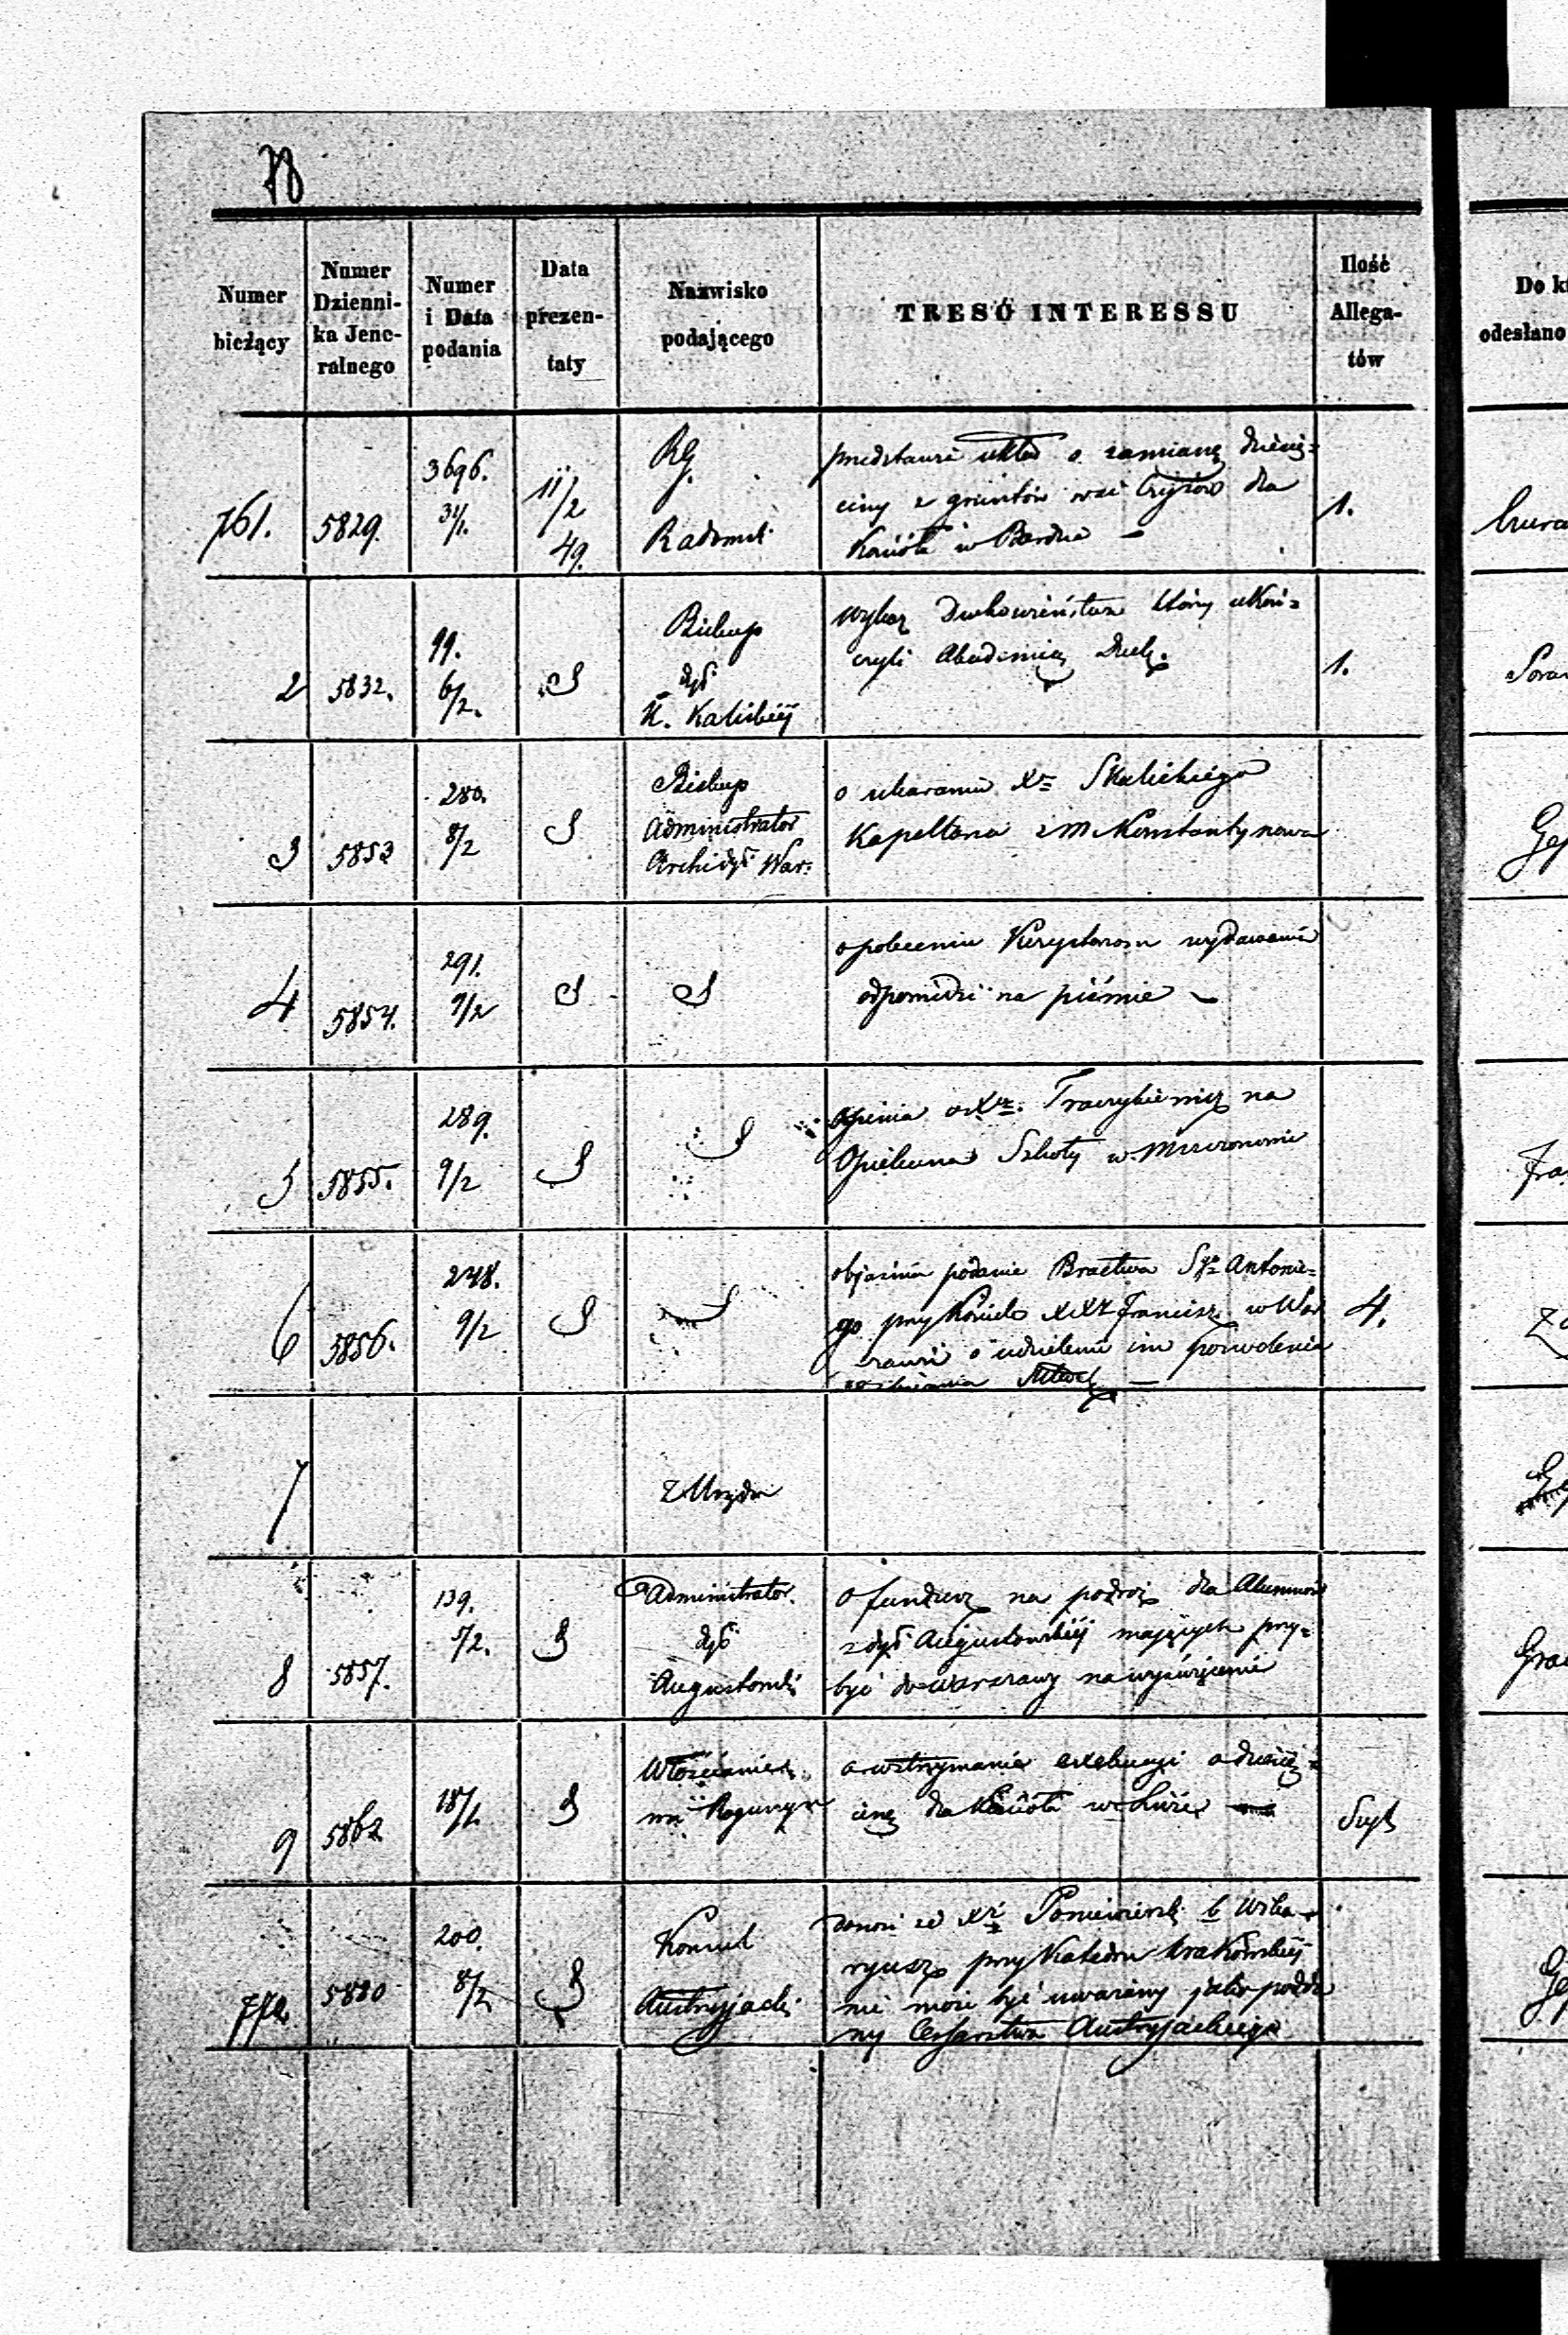 78
Numer bieżący
Numer Dziennika Jeneralnego
Numer i Data podania
Data prezentaty
Nazwisko podającego
TREŚĆ INTERESSU
Ilość Allegatów
Do
odesłano
761. 5829. 3696. 31/1. 11/2 49. RG. Radomsk:
przedstawia układ o zamianę dziesię=
ciny z gruntów wsi dla
Kościoła w Bardzie –
1.
2 5832. 99. 6/2. S Biskup dyś K. Kaliskiej
wykaz Duchowieństwa którzy ukoń=
czyli Akademią Duch.
1.
3 5853 280. 8/2 S Biskup Administrator Archidyś War:
o ukaraniu Xa Skalickiego
Kapellana z m Konstantynowa
4 5854. 291. 9/2 S S
o poleceniu wydawania
odpowiedzi na piśmie –
5 5855. 289. 9/2 S S
Opinia o Xu na
Opiekuna Szkoły w Mszczonowie
6 5856. 248. 9/2 S S
objaśnia podanie Bractwa Sgo Antonie=
go przy Kościele XX Francisz. w War
szawie o udzieleniu im pozwolenia
4.
7 z Urzędu
8 5857. 139. 5/2. S Administrator dyś Augustowski
o fundusz na podróż dla Alumnów
z dyś Augustowskiej mających przy=
być do Warszawy na wyświęcenie
9 5862 18/1 S Włościanie wsi
o wstrzymanie exekucyi o dziesię=
cinę dla Kościoła w
770. 5880 200. 8/2 S Konsul Austryjacki
donosi że Xa b Wika=
ryusz przy Katedrze Krakowskiej
nie może być uważany jako podda
ny Cesarstwa Austryjackiego